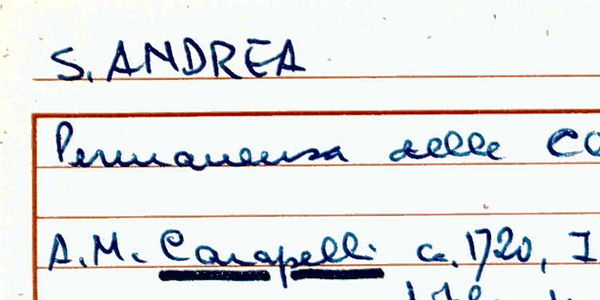 S. ANDREA
Permanenza delle CO
A.M. Carapelli ca. 1720, I